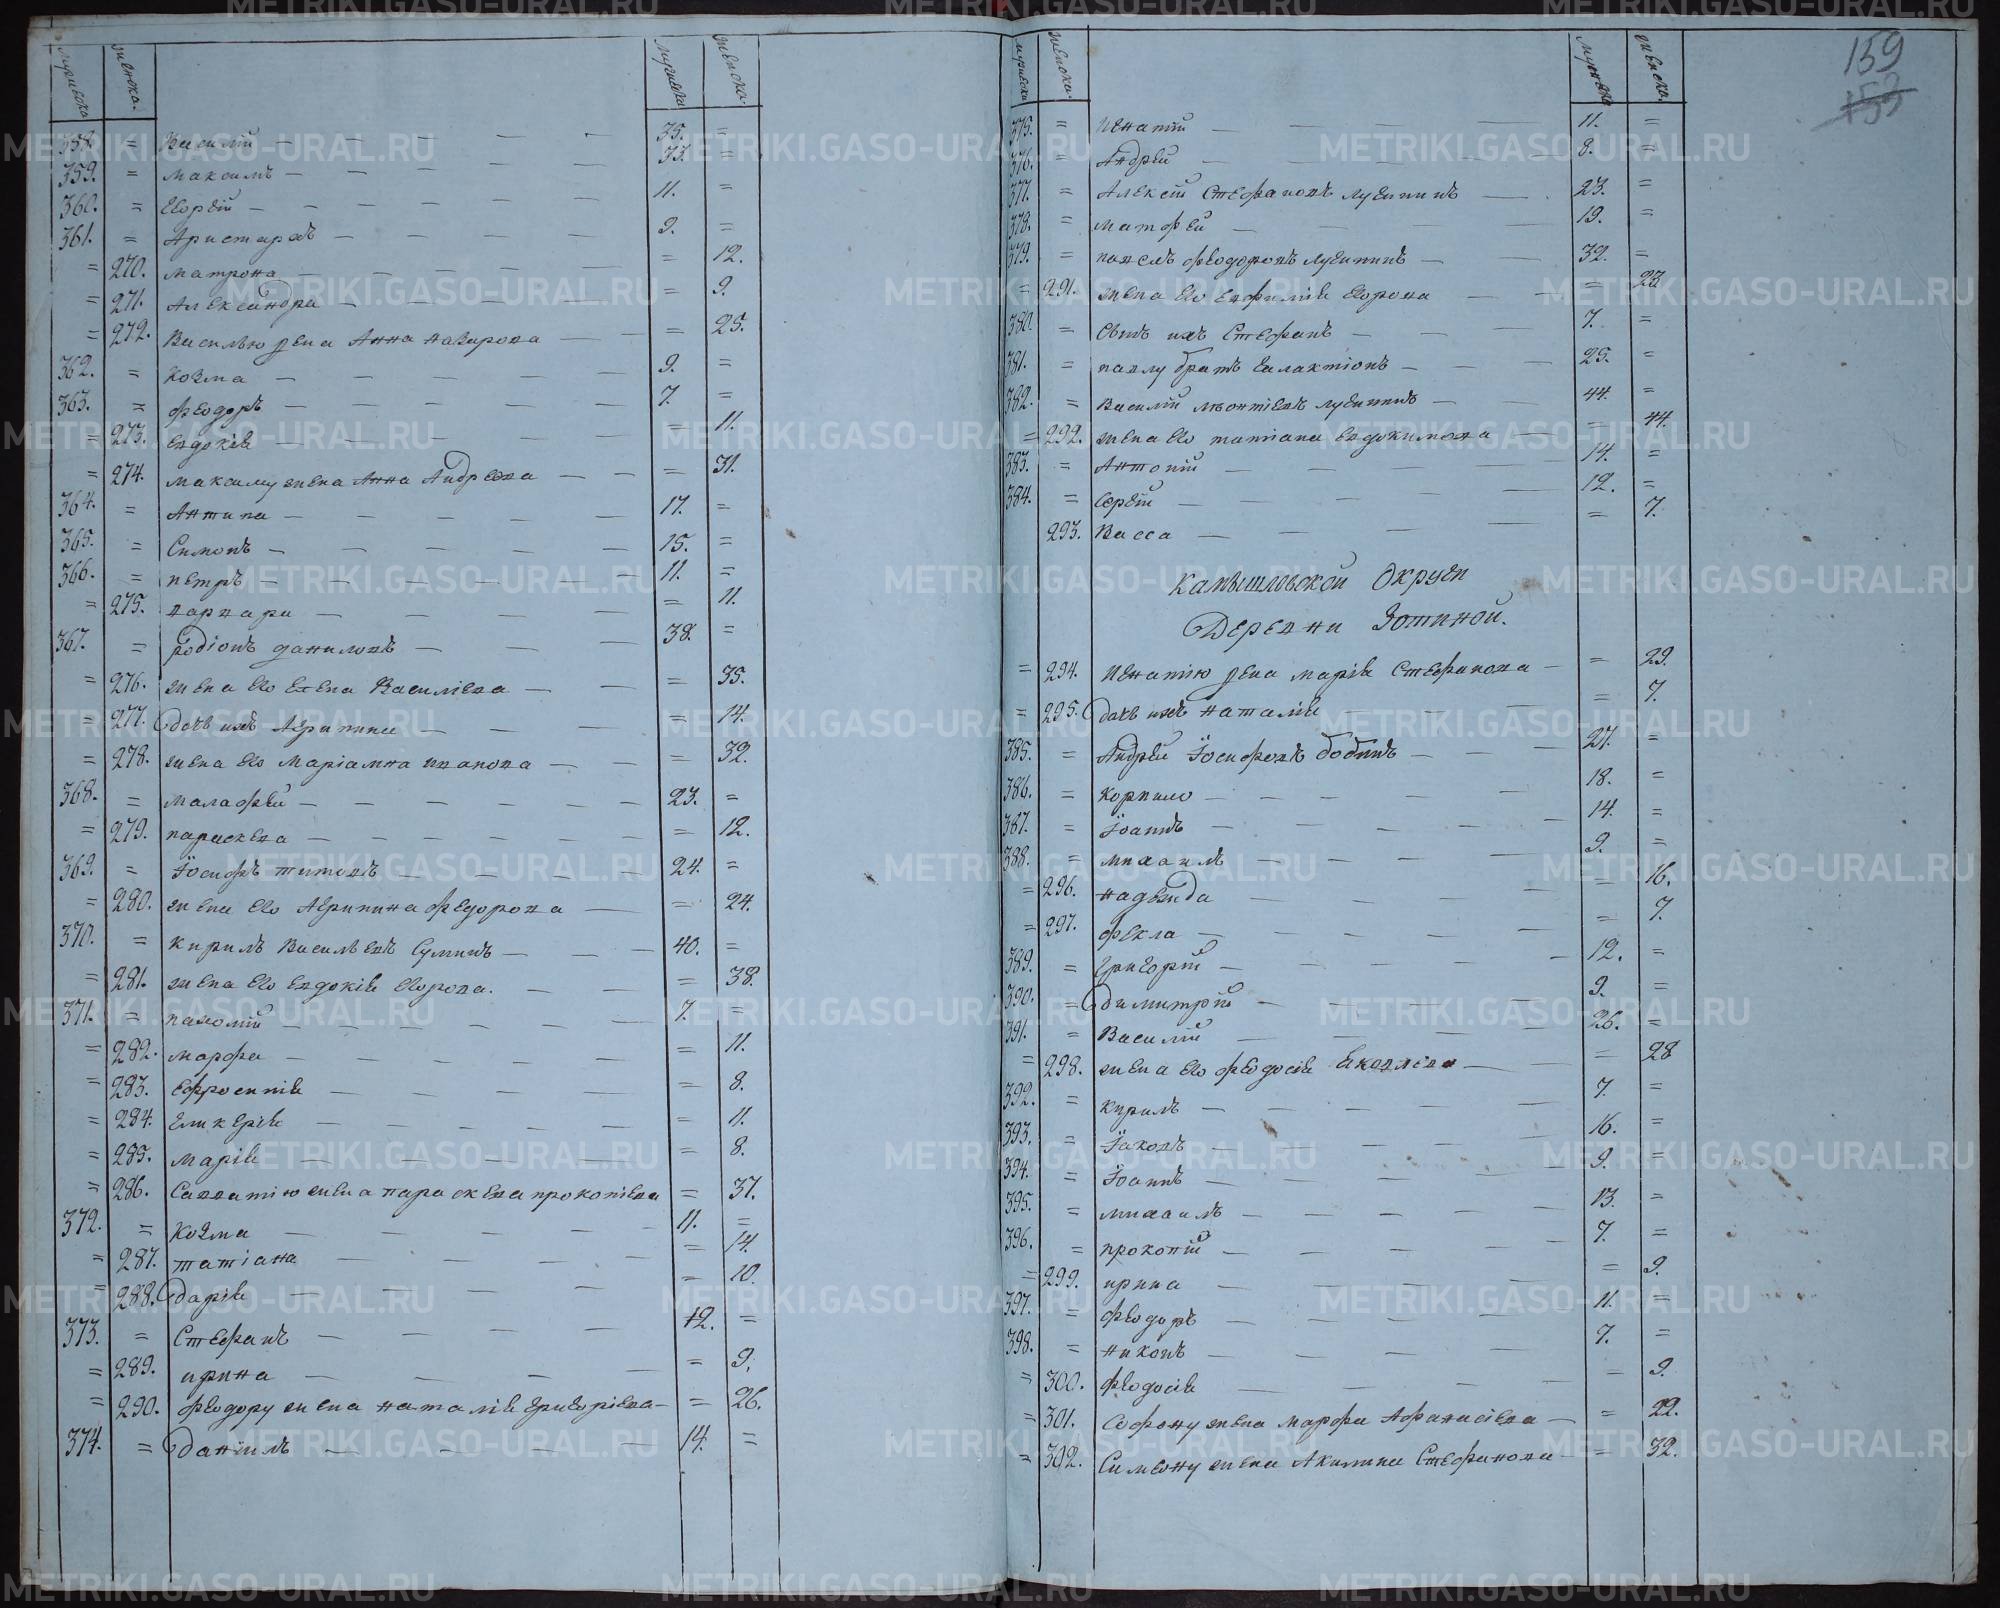 мужеска женска. мужеска женска.
358. = Василiй — 35. =
359. = максимъ — 33. =
360. = Егорѣй — 11. =
361. = Аристархъ — 9. =
= 270. матрона — = 12.
= 271. Александра — = 9.
= 272. Василью жена Анна назарова — = 25.
362. = Козма — 9. =
363. = феодоръ — 7. =
= 273. Евдокiѣ — = 11.
= 274. максиму жена Анна Андреева — = 31.
364. = Антипа — 17. =
365. = Симонъ — 15. =
366. = петръ — 11. =
= 275. варвара — = 11.
367. = родiонъ даниловъ — 38. =
= 276. жена его елена Василiева — = 35.
= 277. дочь ихъ Агрипина — = 14.
= 278. жена его Марiамна иванова — = 32.
368. = малафѣй — 23. =
= 279. параскева — = 12.
369. = Ïосифъ титовъ — 24. =
= 280. жена его Агрипина федорова — = 24.
370. = кирилъ Васильевъ Сулинъ — 40. =
= 281. жена его евдокiѣ егорова. — = 38.
371. = пахомiй — 7. =
= 282. марфа — = 11.
= 283. Ефросинiѣ — = 8.
= 284. гликерiѣ — = 11.
= 285. марiѣ — = 8.
= 286. Савватiю жена параскева прокопiева = 37.
372. = козма — 11. =
= 287. татiана — = 14.
= 288. дарiѣ — = 10.
373. = Стефанъ — 12. =
= 289. ирина — = 9.
= 290. феодору жена наталiѣ григорiева — = 26.
374. = данiилъ — 14. =
159
153
мужеска женска. мужеска женска.
375. = игнатiй — 11. =
376. = Андрѣй — 8. =
377. = Алексѣй Стефановъ лугининъ — 23. =
378. = матфѣй — 19. =
379. = павелъ феодоровъ лугининъ — 32. =
= 291. жена его евфимiѣ егорова — = 28
380. = Сынъ ихъ Стефанъ — 7. =
381. = павлу братъ галактiонъ — 25. =
382. = Василiй леонтiевъ лугининъ — 44. =
= 292. жена его татiана евдокимова — = 44.
383. = Антонiй — 14. =
384. = Сергѣй — 12. =
293. Васса — = 7.
Камышловской Округи
Деревни Зотиной.
= 294. игнатiю жена марiѣ Стефанова — = 29.
= 295. дочь ихъ наталiѣ — = 7.
385. = Андрѣй Ïосифовъ бобинъ — 27. =
386. = корнило — 18. =
387. = Ïоаннъ — 14. =
388. = михаилъ — 9. =
= 296. надежда — = 16.
= 297. фекла — = 7.
389. = григорiй — 12. =
390. = димитрiй — 9. =
391. = Василiй — 26. =
= 298. жена его феодосiѣ Яковлева — = 28
392. = кирилъ — 7. =
393. = Ïаковъ — 16. =
394. = Ïоаннъ — 9. =
395. = михаилъ — 13. =
396. = прокопiй — 7. =
= 299. ирина — = 9.
397. = феодоръ — 11. =
398. = никонъ — 7. =
= 300. феодосiѣ — = 9.
= 301. Софону жена марфа Афанасiева — = 22.
= 302. Симеону жена Акилина Стефанова — = 32.
METRIKI.GASO-URAL.RU